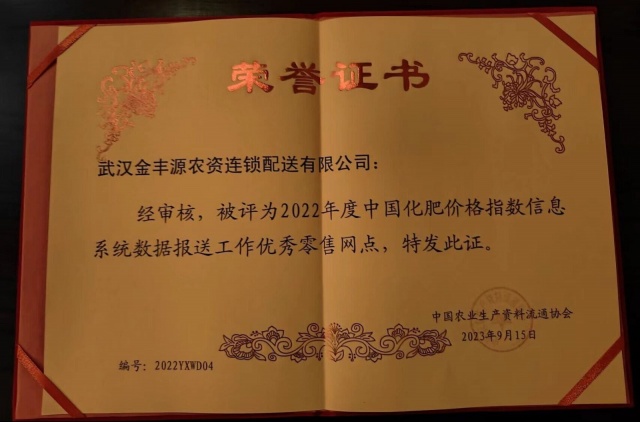 荣誉证书
武汉金丰源农资连锁配送有限公司：
经审核，被评为2022年度中国化肥价格指数信息
系统数据报送工作优秀零售网点，特发此证。
中国农业生产资料流通协会
2023年9月15日
编号：2022YXWD04